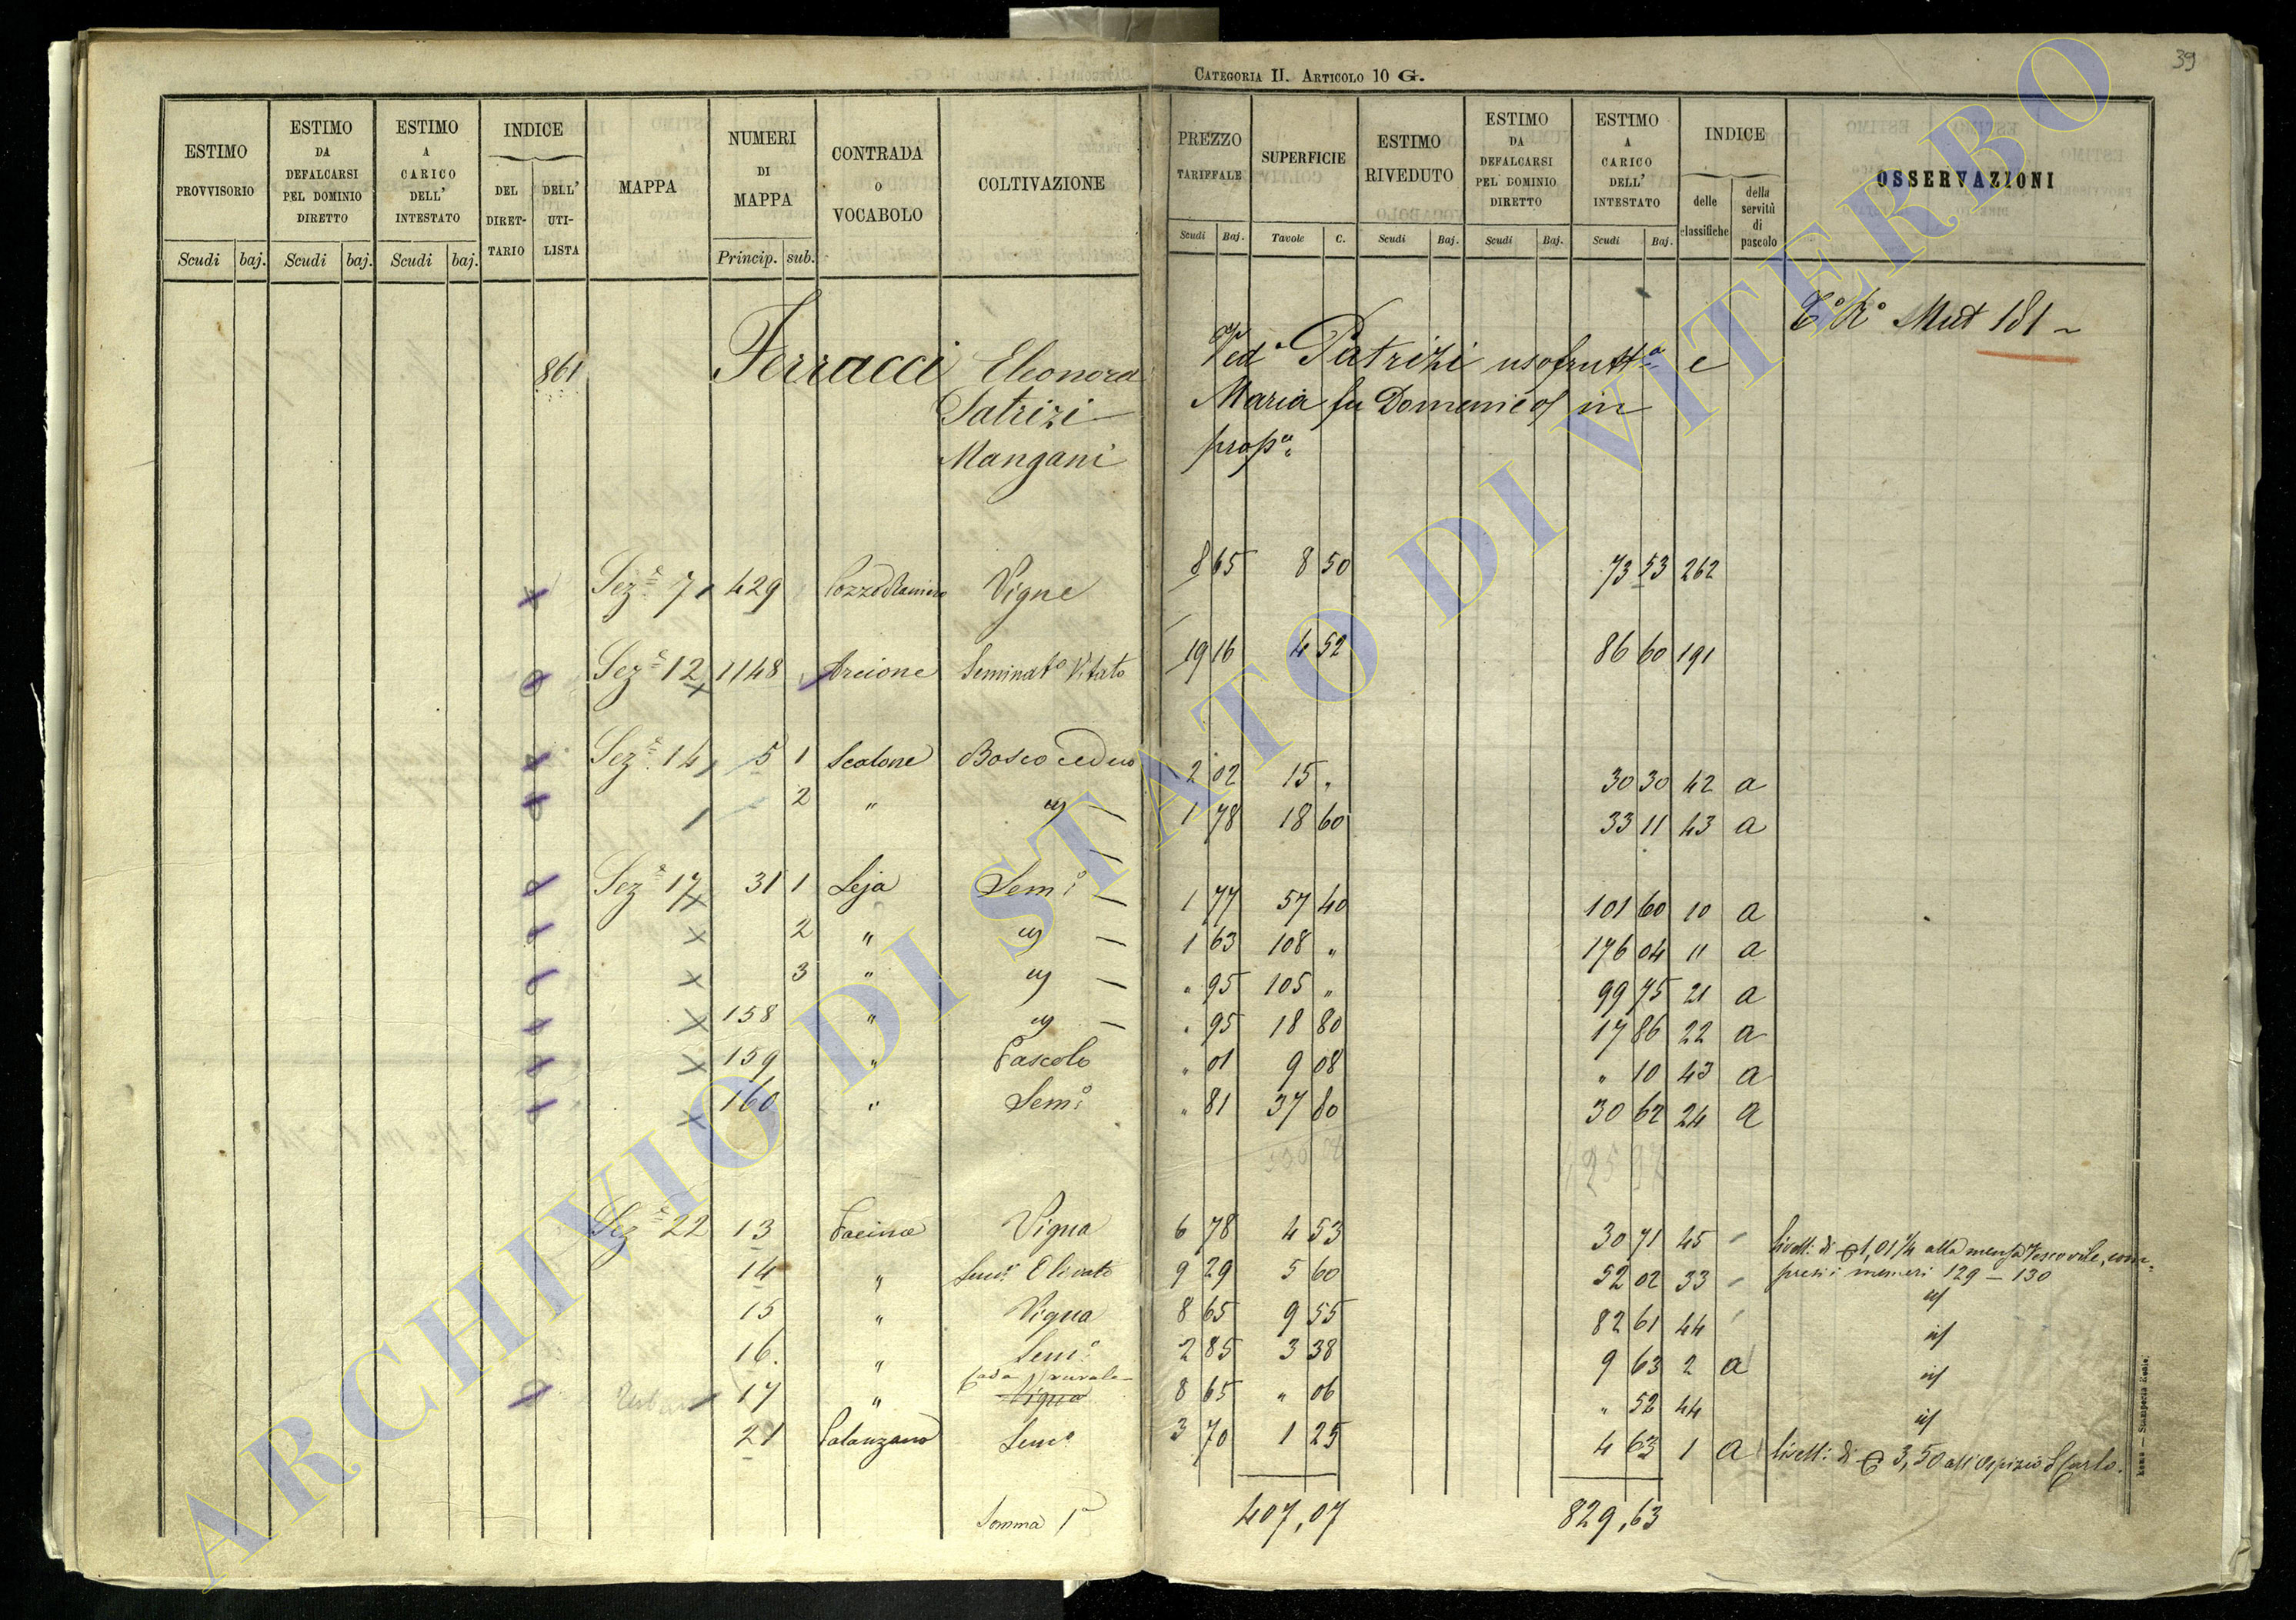 39
CATEGORIA II. ARTICOLO 10 G.
ESTIMO PROVVISORIO Scudi baj.
ESTIMO DA DEFALCARSI PEL DOMINIO DIRETTO Scudi baj.
ESTIMO A CARICO DELL' INTESTATO Scudi baj.
INDICE DEL DIRET-TARIO DELL' UTI-LISTA
MAPPA
NUMERI DI MAPPA Princip. sub.
CONTRADA O VOCABOLO
COLTIVAZIONE
PREZZO TARIFFALE Scudi Baj.
SUPERFICIE Tavole C.
ESTIMO RIVEDUTO Scudi Baj.
ESTIMO DA DEFALCARSI PEL DOMINIO DIRETTO Scudi Baj.
ESTIMO A CARICO DELL' INTESTATO Scudi Baj.
INDICE delle classifiche della servitù di pascolo
OSSERVAZIONI
Mut 181
861 Ferracci Eleonora Ved.a Patrizi usofrutt.a e
Patrizi Maria fu Domenico in
Mangani prop.a
Sez.e 7 429 Pozzo Ramiero Vigne 8 65 8 50 73 53 262
Sez.e 12 1148 Arcione Seminat.o Vitato 19 16 4 52 86 60 191
Sez.e 14 5 1 Scalone Bosco ceduo 2 02 15 " 30 30 42 a
2 " id 1 78 18 60 33 11 43 a
Sez.e 17 31 1 Leja Sem.o 1 77 57 40 101 60 10 a
2 " id 1 63 108 " 176 04 11 a
3 " id " 95 105 " 99 75 21 a
158 " id " 95 18 80 17 86 22 a
159 " Pascolo " 01 9 08 " 10 43 a
160 " Sem.o " 81 37 80 30 62 24 a
Sez.e 22 13 Vigna 6 78 4 53 30 71 45 Livell: di 1,01 1/4 alla mensa Vescovile, com-
14 " Sem.o Olivato 9 29 5 60 52 02 33 presi i numeri 129 - 130
15 " Vigna 8 65 9 55 82 61 44 id
16. " Sem.o 2 85 3 38 9 63 2 a id
Casa rurale
17 " Vigna 8 65 " 06 " 52 44 id
21 Palanzano Sem.o 3 70 1 25 4 63 1 a Livell: di 3,50 all'Ospizio S Carlo.
Somma 407,07 829,63
Roma — Stamperia Reale.
ARCHIVIO DI STATO DI VITERBO